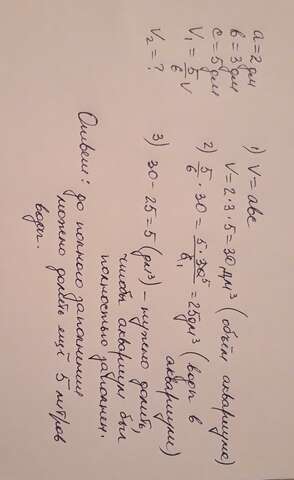 a = 2 дм
b = 3 дм
c = 5 дм
V₁ = 5/6 V
V₂ = ?
1) V = abc
V = 2 · 3 · 5 = 30 дм³ (объём аквариума)
2) 5/6 · 30 = 5 · 30⁵/6₁ = 25 дм³ (воды в
аквариуме)
3) 30 - 25 = 5 (дм³) - нужно долить,
чтобы аквариум был
полностью заполнен.
Ответ: до полного заполнения
можно долить ещё 5 литров
воды.